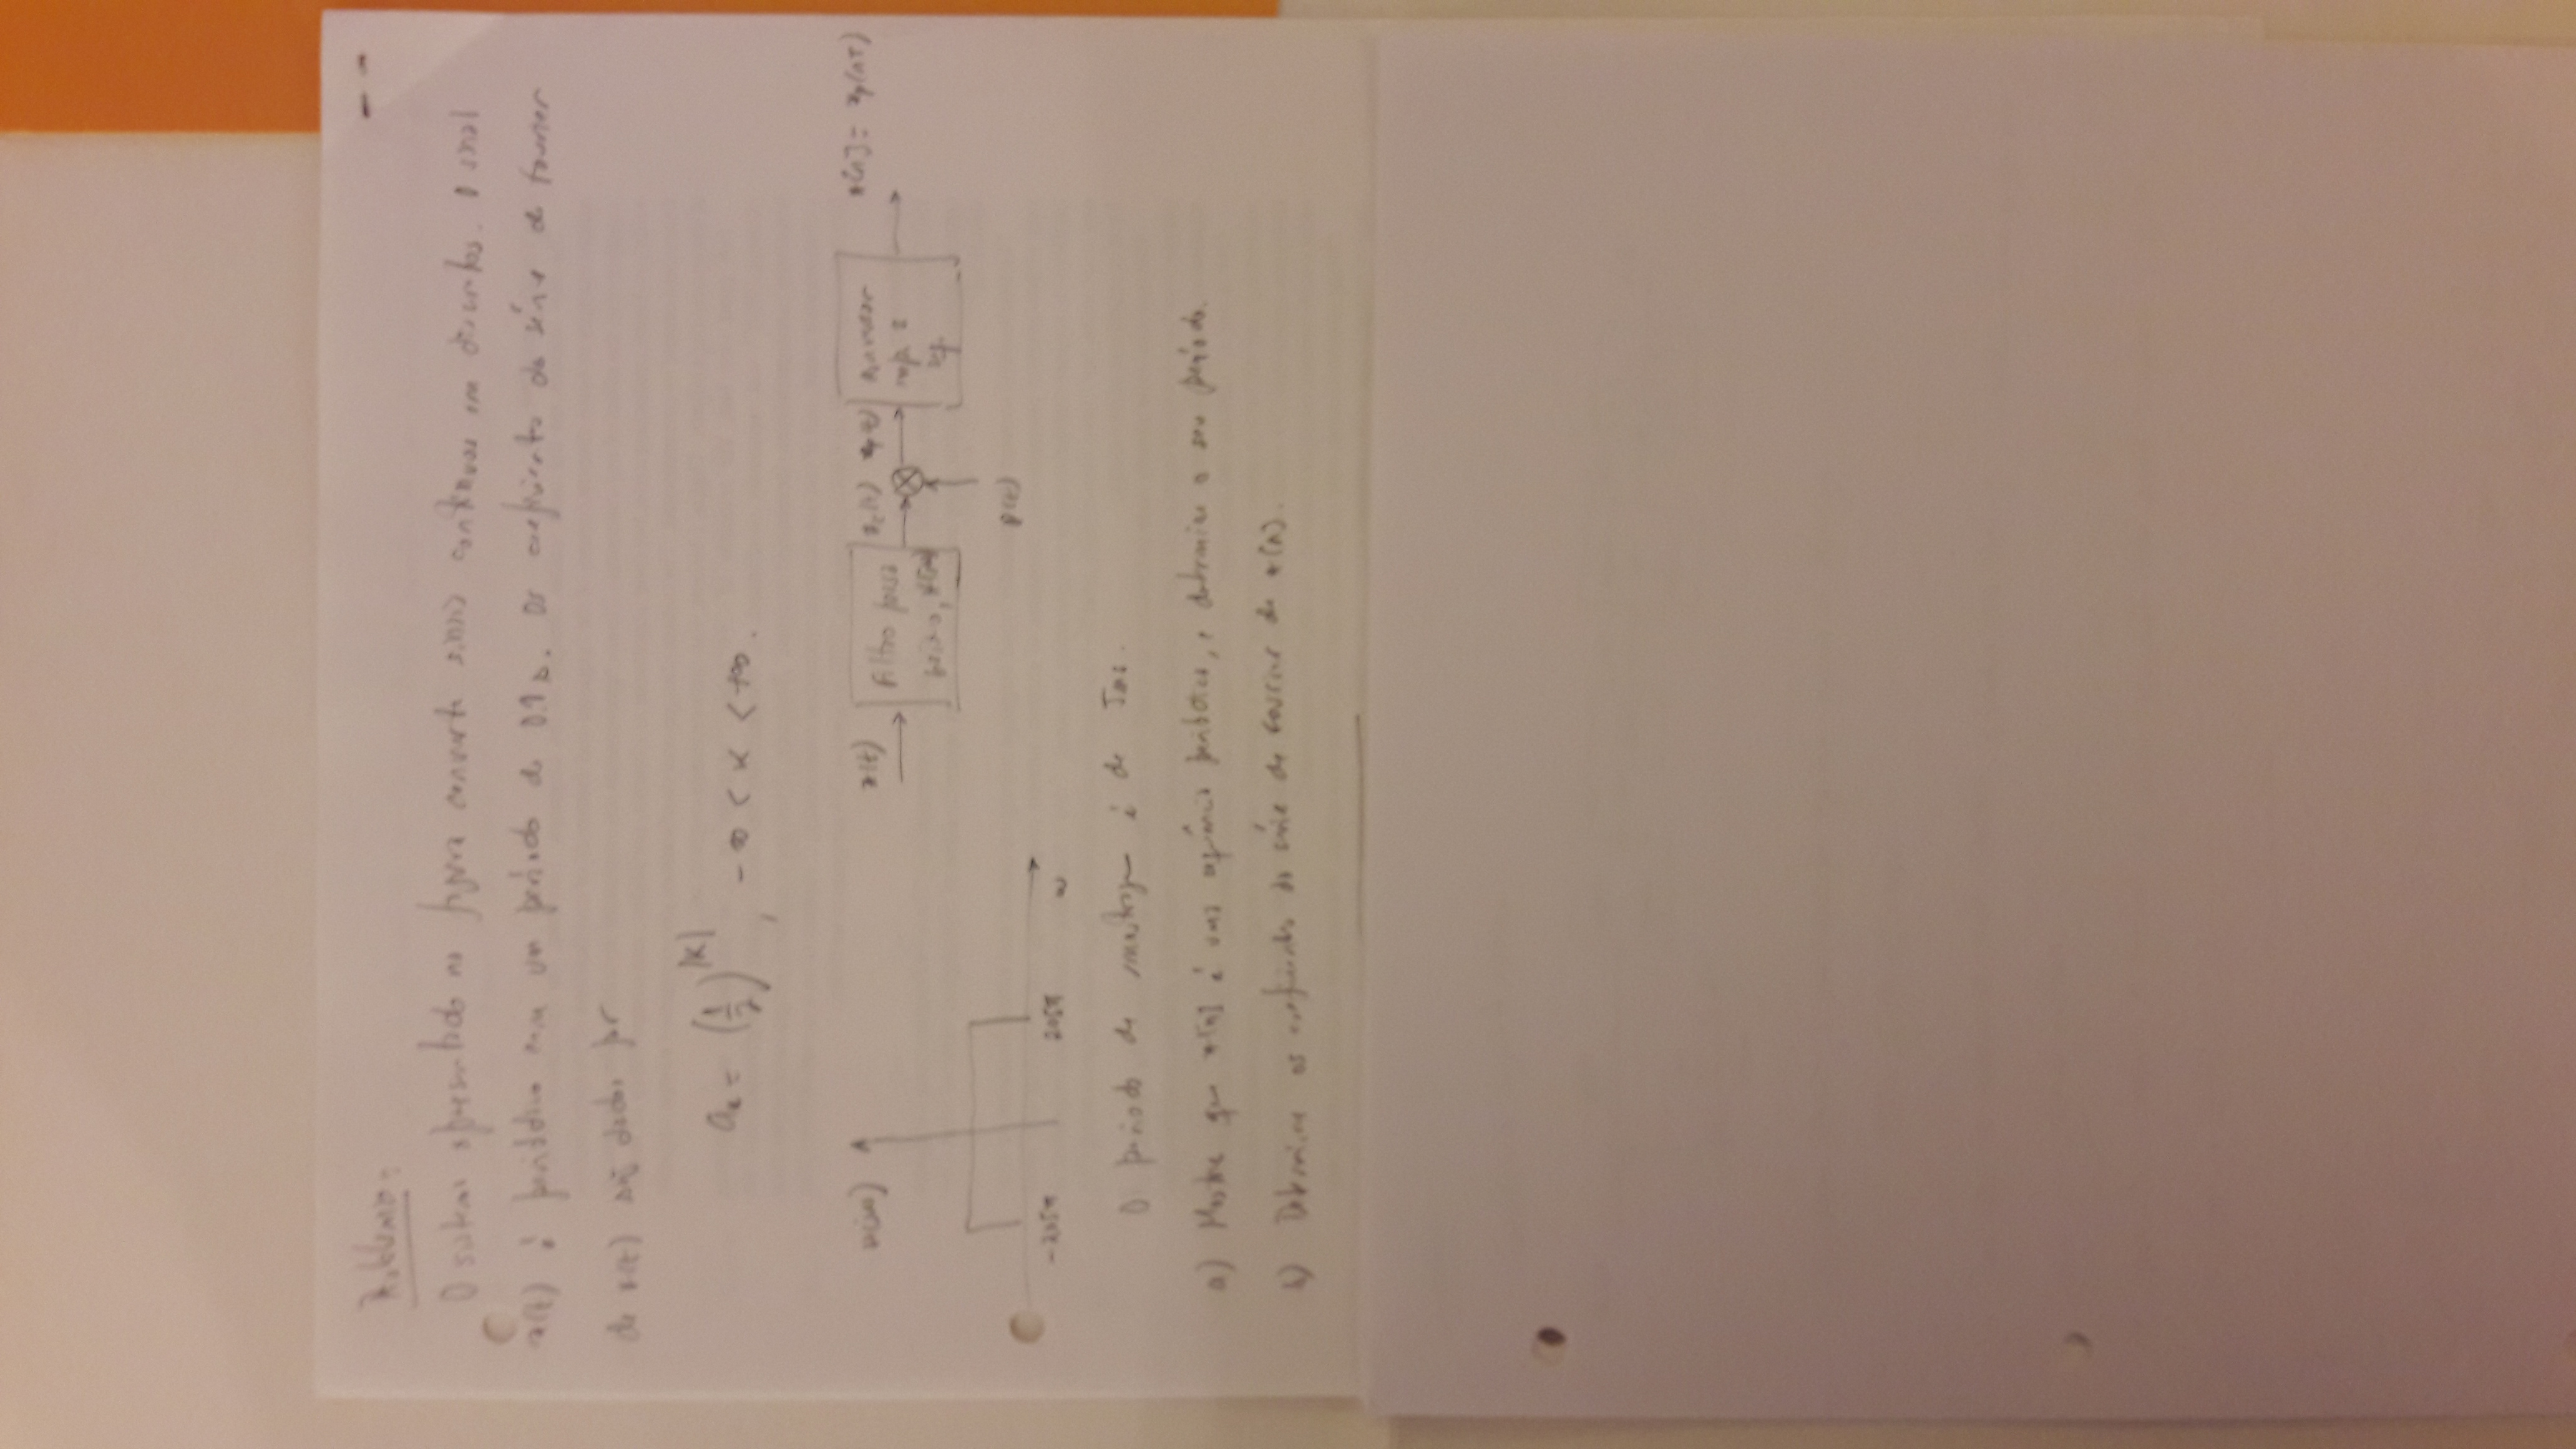 Problema:
O sistema apresentado na figura converte sinais contínuos em discretos. O sinal
x(t) é periódico com um período de 0.1 s. Os coeficientes da série de Fourier
de x(t) são dados por
a_k = (1/2)^|k| , -∞ < k < +∞.
H(jω)
-205π 205π ω
x(t) Filtro passa baixo, H(jω) x_c(t) x_p(t) Conversor imp. seq. x[n] = x_p(nT)
p(t)
O período de amostragem é de 5ms.
a) Mostre que x[n] é uma sequência periódica, e determine o seu período.
b) Determine os coeficientes da série de Fourier de x[n].